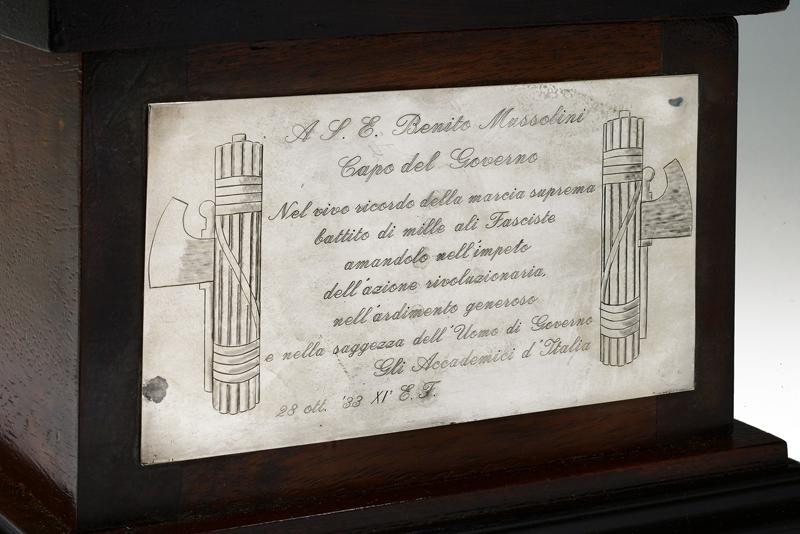 A S. E. Benito Mussolini
Capo del Governo
Nel vivo ricordo della marcia suprema
battito di mille ali Fasciste
amandolo nell'impeto
dell'azione rivoluzionaria,
nell'ardimento generoso
e nella saggezza dell'Uomo di Governo
Gli Accademici d'Italia
28 ott. '33 XI° E. F.